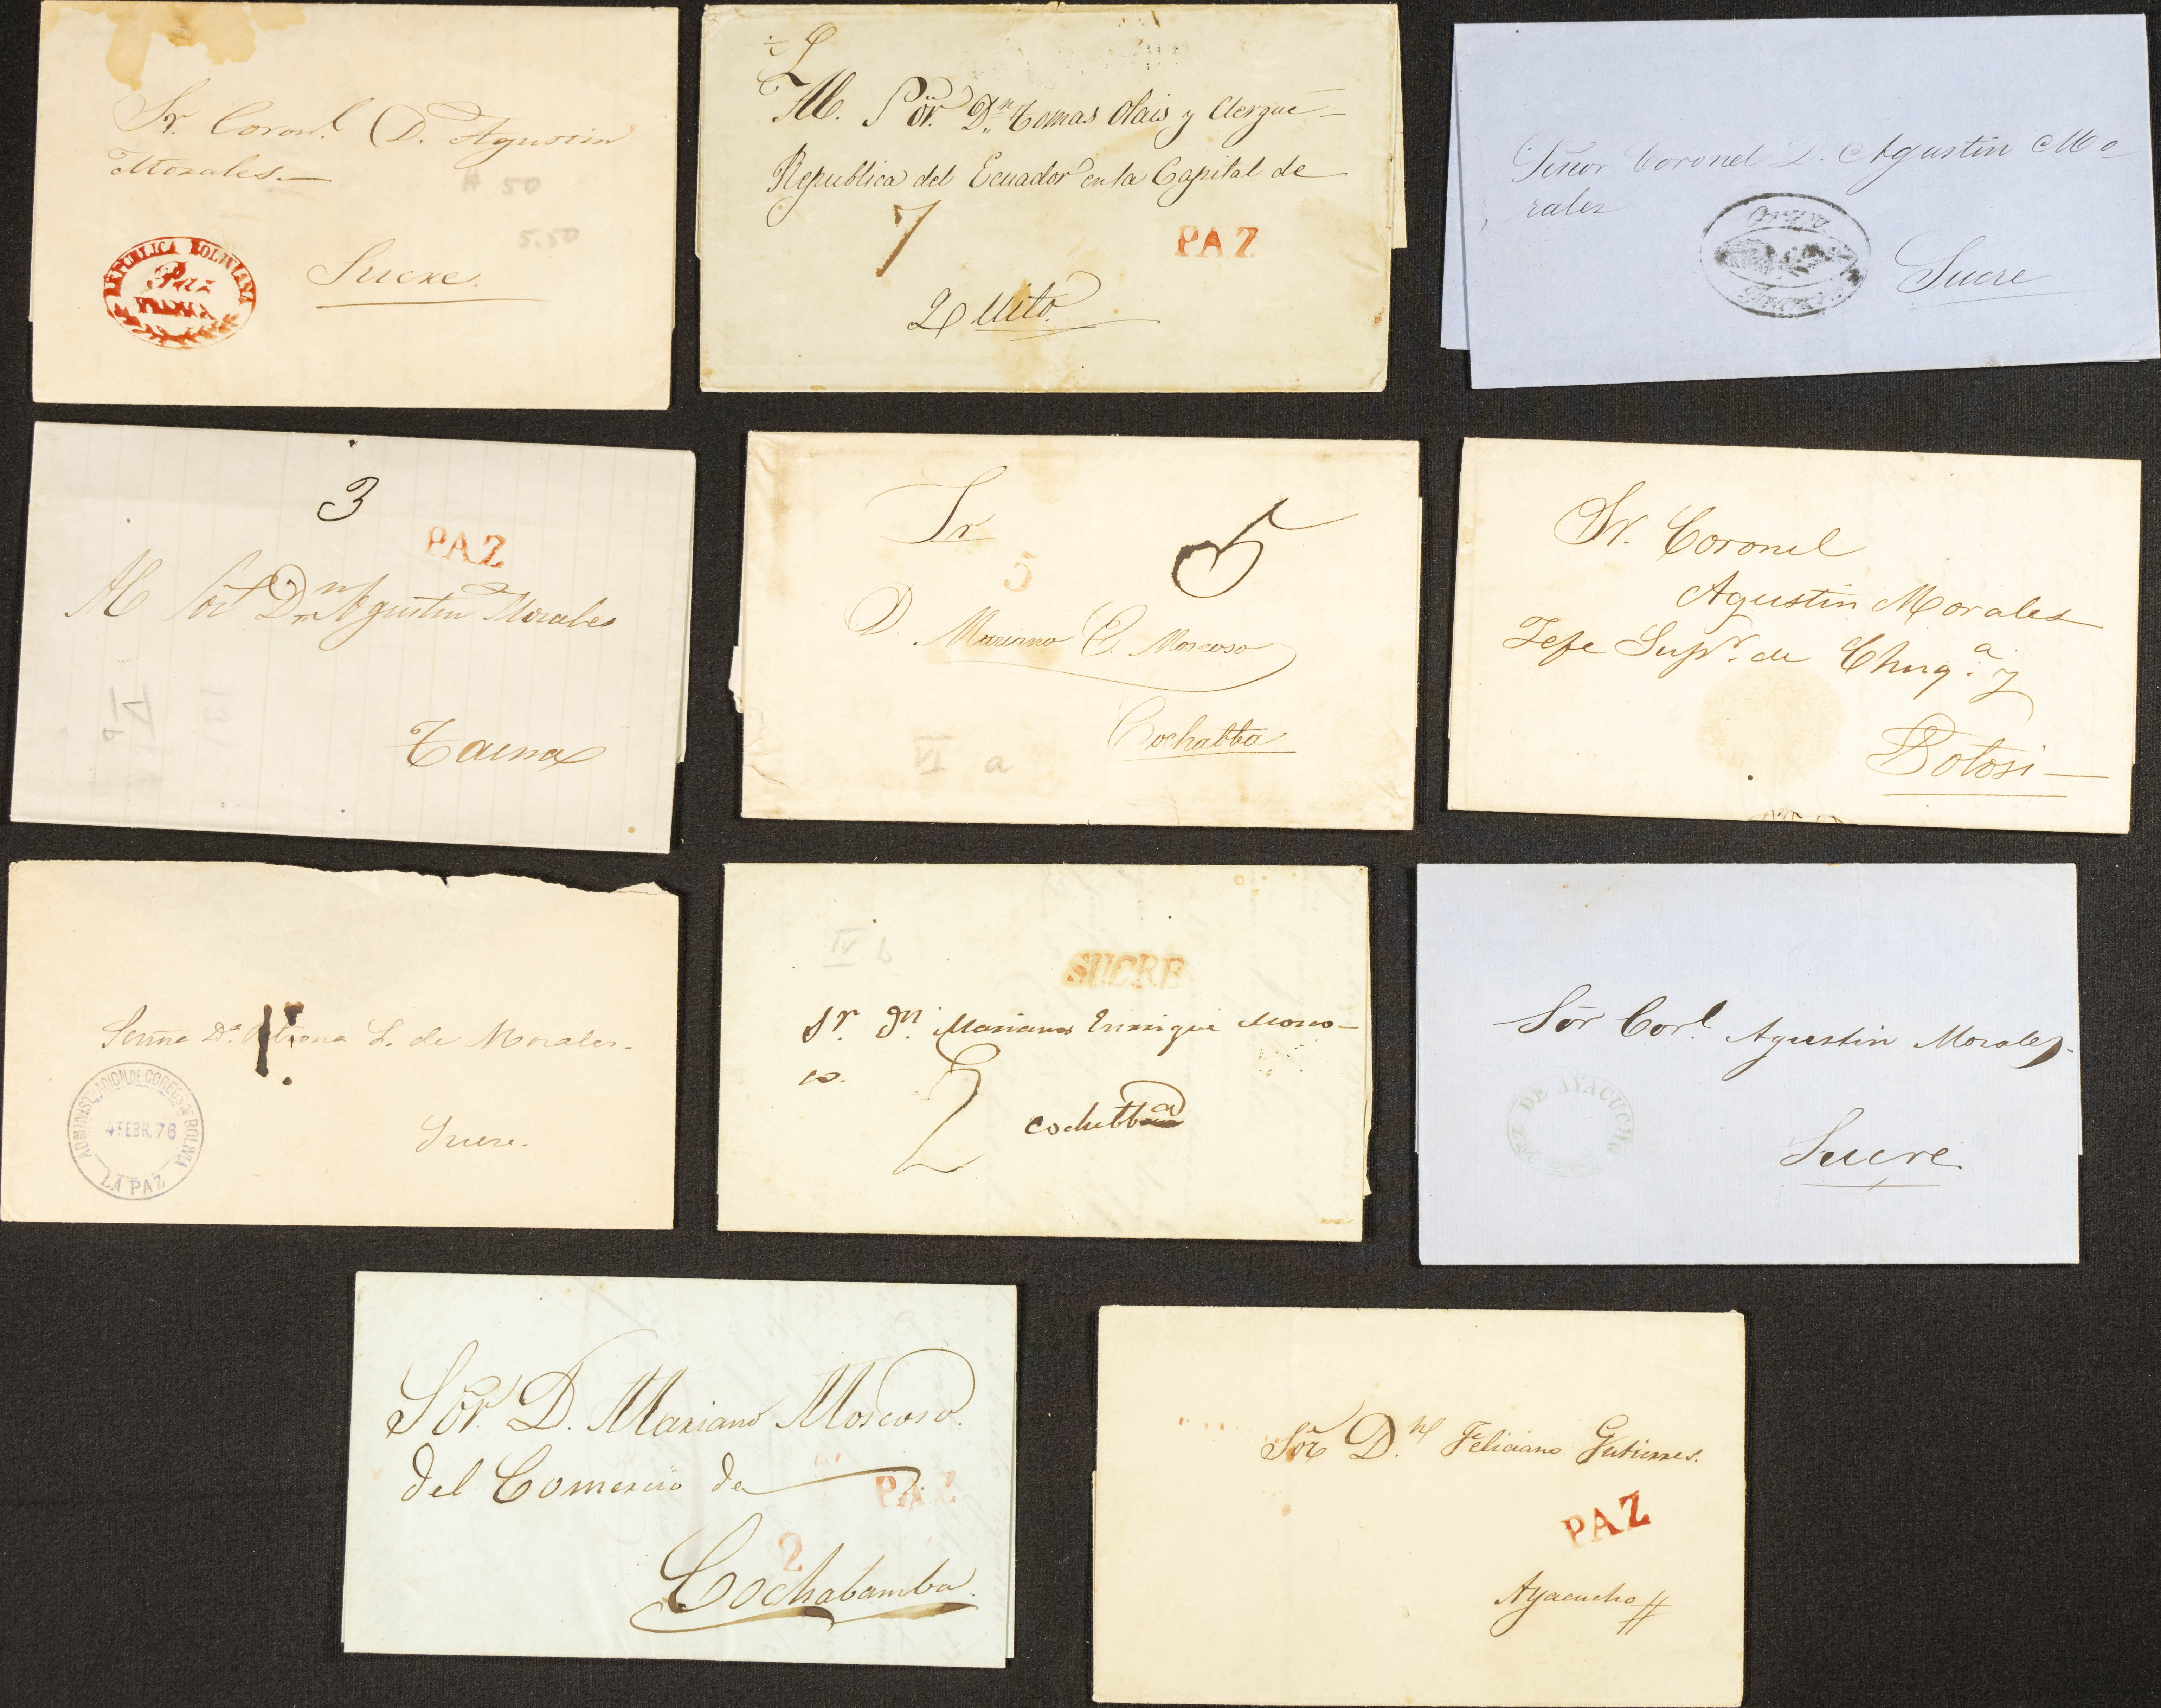 Sr. Coron.l D. Agustin
Morales.
# 50
5.50
REPUBLICA BOLIVIANA
Paz
FRANCA
Sucre.
Sor. Dn. Tomas Olais y Clergue
Republica del Ecuador en la Capital de
7
PAZ
Quito.
Señor Coronel D. Agustin Mo-
rales
Sucre
3
PAZ
Al Sor Dn Agustin Morales
IV b
Tacna
Sr
5
5
D. Mariano E. Moscoso
Cochabba
IV a
Sr. Coronel
Agustin Morales
Jefe Supr. de Chuq.a y
Potosi
Señora Da. Petrona L. de Morales.
ADMINISTRACION DE CORREOS DE BOLIVIA
4 FEBR. 76
LA PAZ
Sucre.
IV b
SUCRE
Sr. Dn. Mariano Enrrique Mosco-
so.
2
Sor Corl. Agustin Morales.
DE AYACUCHO
Sucre
Sor. D. Mariano Moscoso.
del Comercio de
PAZ
2
Cochabamba.
Sor D.n Feliciano Gutierres.
PAZ
Ayacucho